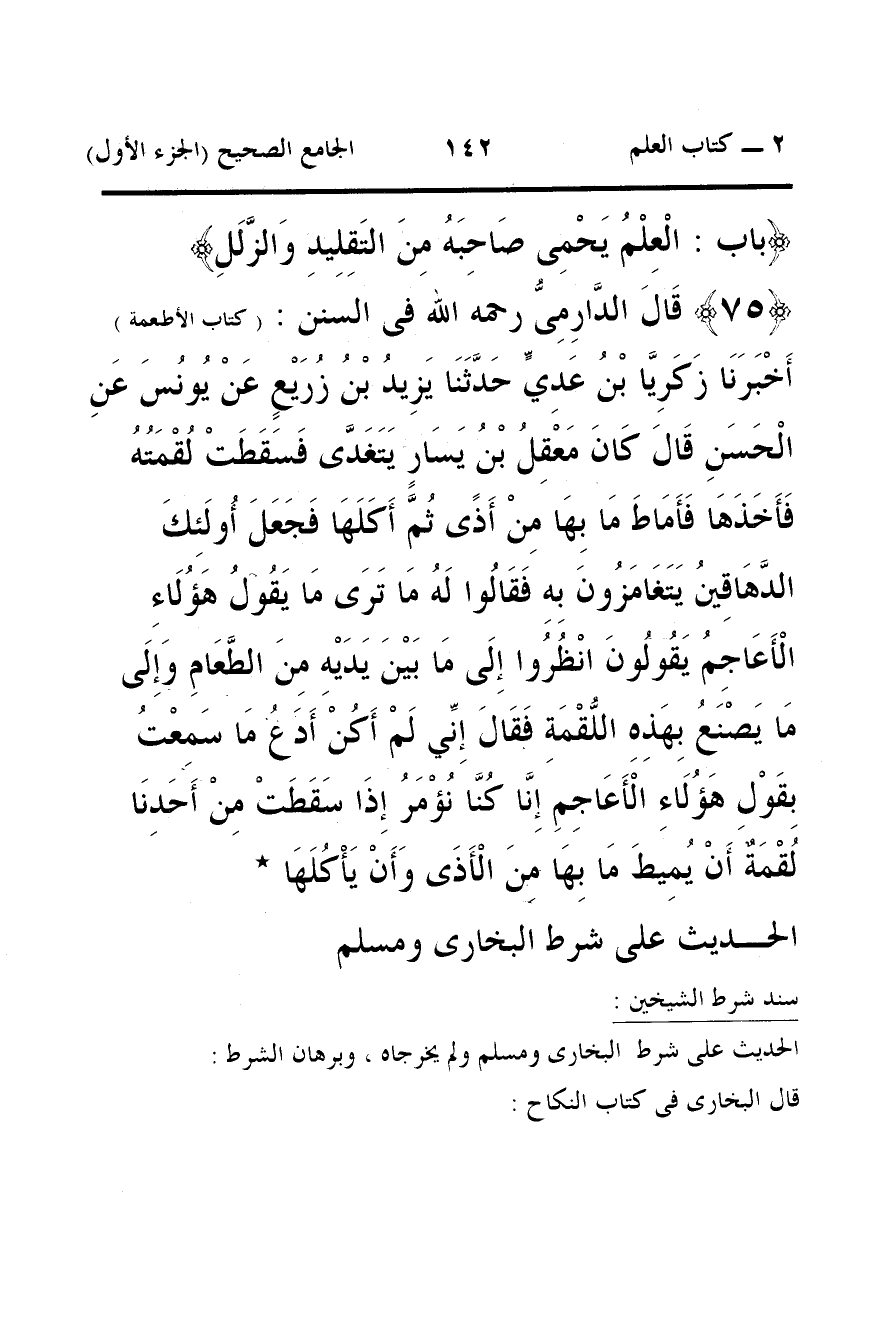 ٢ ــ كتاب العلم ١٤٢ الجامع الصحيح (الجزء الأول)
﴿باب : الْعِلْمُ يَحْمِى صَاحِبَهُ مِنَ التَقِلِيدِ وَالزَّلَلِ﴾
﴿٧٥﴾ قَالَ الدَّارِمِىُّ رحمه الله فى السنن : ( كتاب الأطعمة )
أَخْبَرَنَا زَكَرِيَّا بْنُ عَدِيٍّ حَدَّثَنَا يَزِيدُ بْنُ زُرَيْعٍ عَنْ يُونُسَ عَنِ
الْحَسَنِ قَالَ كَانَ مَعْقِلُ بْنُ يَسَارٍ يَتَغَدَّى فَسَقَطَتْ لُقْمَتُهُ
فَأَخَذَهَا فَأَمَاطَ مَا بِهَا مِنْ أَذًى ثُمَّ أَكَلَهَا فَجَعَلَ أُولَئِكَ
الدَّهَاقِينُ يَتَغَامَزُونَ بِهِ فَقَالُوا لَهُ مَا تَرَى مَا يَقُولُ هَؤُلَاءِ
الْأَعَاجِمُ يَقُولُونَ انْظُرُوا إِلَى مَا بَيْنَ يَدَيْهِ مِنَ الطَّعَامِ وَإِلَى
مَا يَصْنَعُ بِهَذِهِ اللُّقْمَةِ فَقَالَ إِنِّي لَمْ أَكُنْ أَدَعُ مَا سَمِعْتُ
بِقَوْلِ هَؤُلَاءِ الْأَعَاجِمِ إِنَّا كُنَّا نُؤْمَرُ إِذَا سَقَطَتْ مِنْ أَحَدِنَا
لُقْمَةٌ أَنْ يُمِيطَ مَا بِهَا مِنَ الْأَذَى وَأَنْ يَأْكُلَهَا *
الحـــديث على شرط البخارى ومسلم
سند شرط الشيخين :
الحديث على شرط البخارى ومسلم ولم يخرجاه ، وبرهان الشرط :
قال البخارى فى كتاب النكاح :